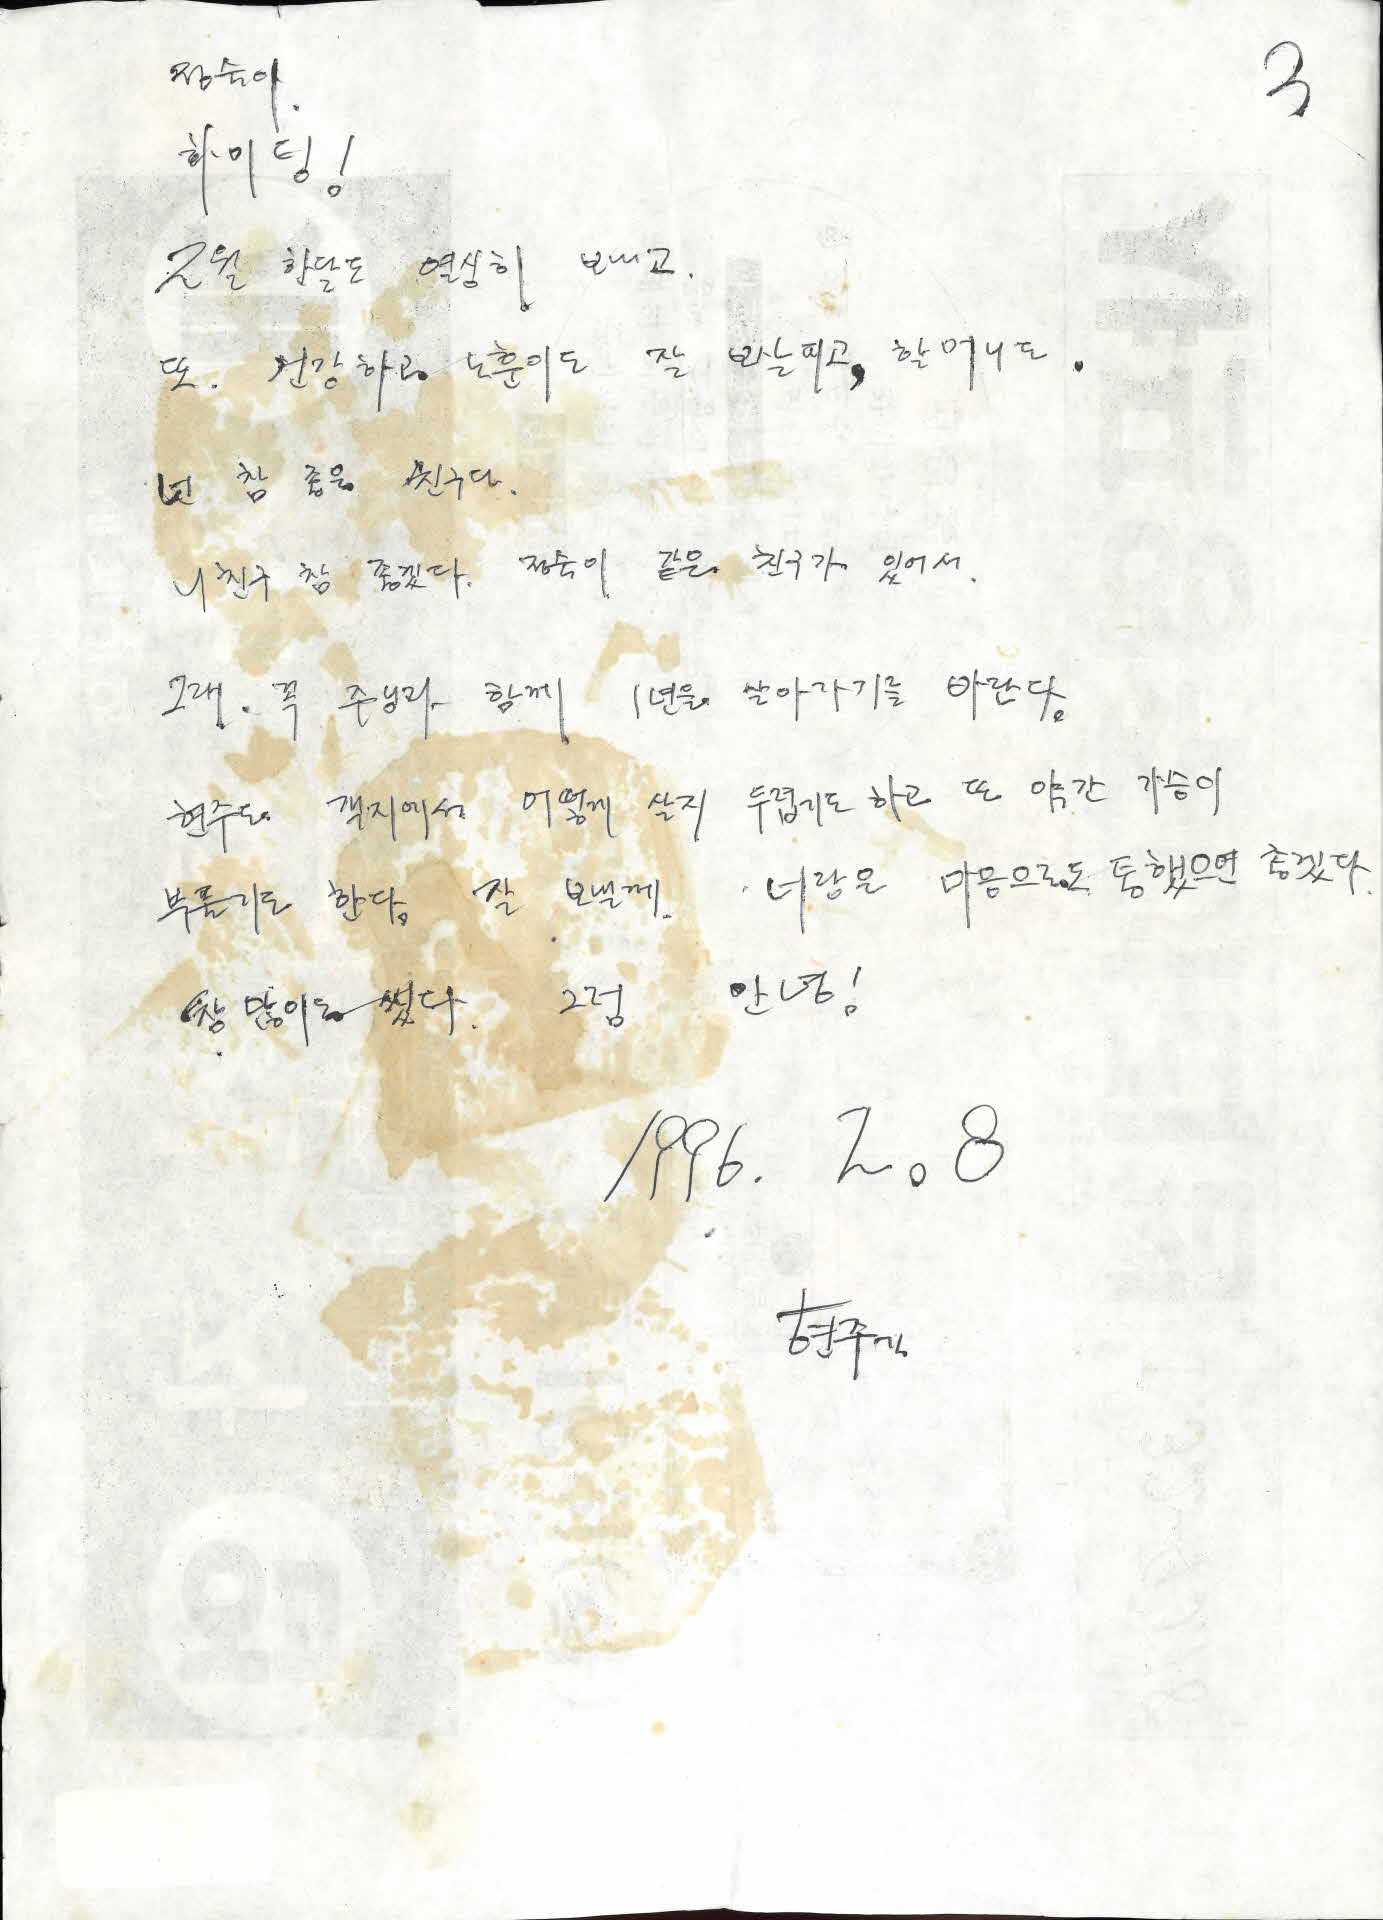 3
정숙아.
화이팅!
2월 한달도 열심히 보내고.
또. 건강하고 노훈이도 잘 보살피고, 할머니도.
넌 참 좋은 친구다.
니친구 참 좋겠다. 정숙이 같은 친구가 있어서.
그래. 꼭 주님과 함께 1년을 살아가기를 바란다.
현주도 객지에서 어떻게 살지 두렵기도 하고 또 약간 가슴이
부풀기도 한다. 잘 보낼께. 너랑은 마음으로도 통했으면 좋겠다.
참 많이도 썼다. 그럼 안녕!
1996. 2. 8
현주가